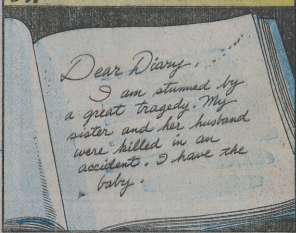 Dear Diary,
I am stunned by
a great tragedy. My
sister and her husband
were killed in an
accident. I have the
baby.